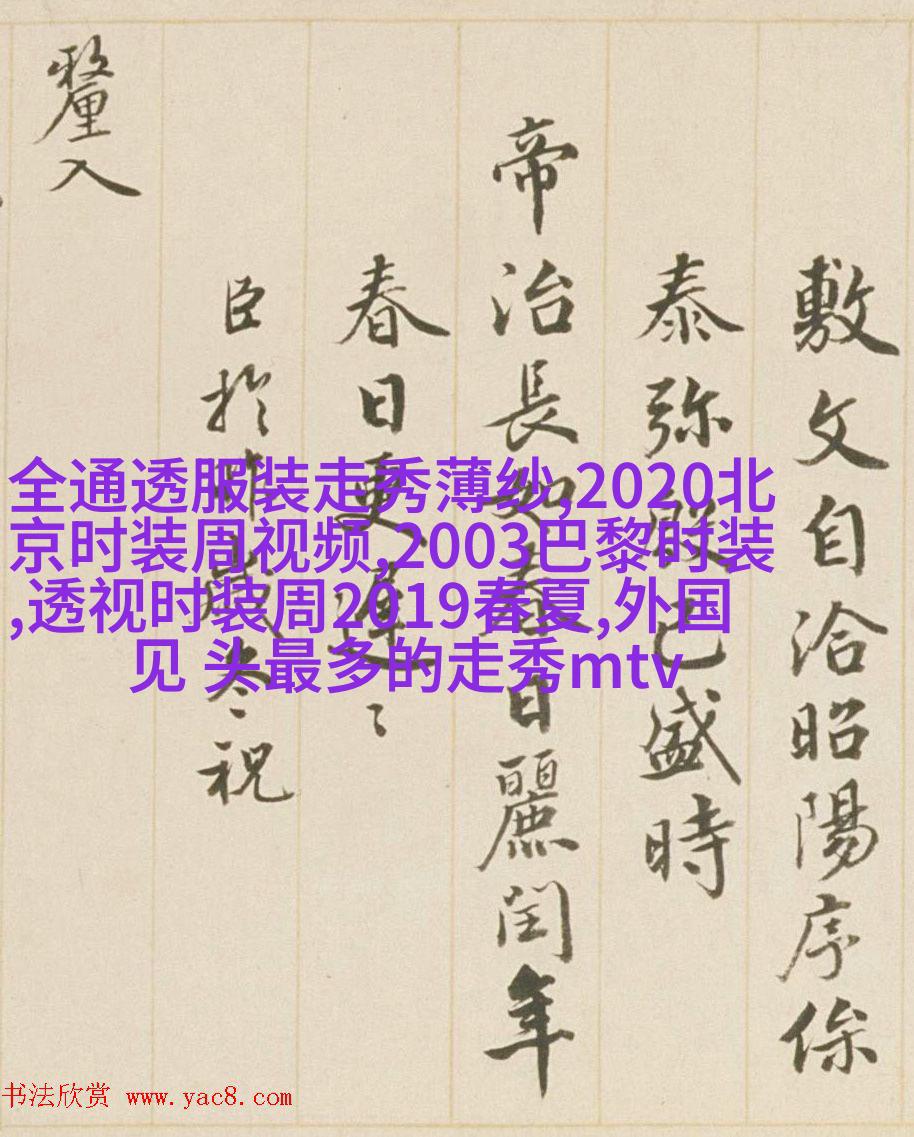 敷文自洽昭陽序僚
泰弥殷已盛時
帝治長如春日麗閏年
春日更遲〻
臣於昨歲冬祝
釐入
全通透服装走秀薄纱,2020北
京时装周视频,2003巴黎时装
,透视时装周2019春夏,外国
见 头最多的走秀mtv
书法欣赏 www.yac8.com